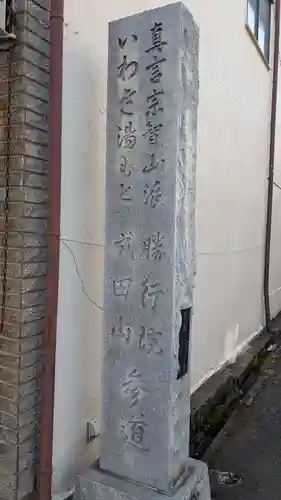 真言宗智山派 勝行院
いわき湯もと 弐田山
参道